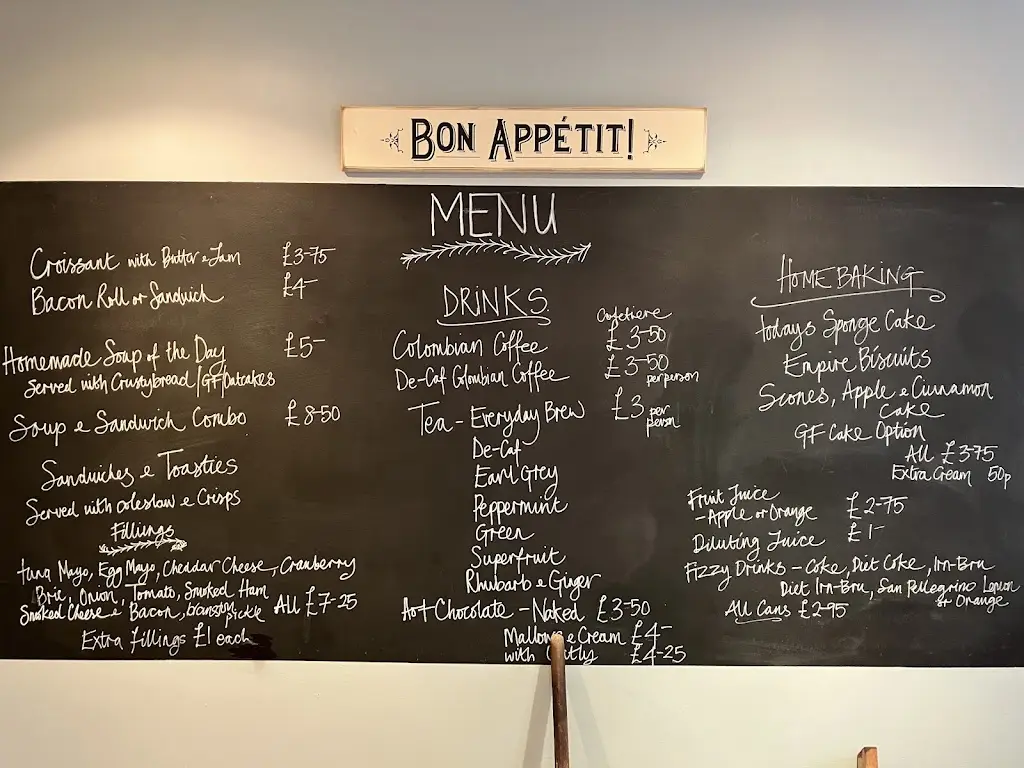 BON APPÉTIT!
MENU
Croissant with Butter & Jam £3-75
Bacon Roll or Sandwich £4-
Homemade Soup of the Day £5-
Served with Crustybread / GF Oatcakes
Soup & Sandwich Combo £8-50
Sandwiches & Toasties
Served with coleslaw & Crisps
Fillings
Tuna Mayo, Egg Mayo, Cheddar Cheese, Cranberry
Brie, Onion, Tomato, Smoked Ham
Smoked Cheese & Bacon, branston pickle All £7-25
Extra fillings £1 each
DRINKS
Cafetiere
Colombian Coffee £3-50
De-Caf Colombian Coffee £3-50
per person
Tea - Everyday Brew £3 per person
De-Caf
Earl Grey
Peppermint
Green
Superfruit
Rhubarb & Ginger
Hot Chocolate - Naked £3-50
Mallows & Cream £4-
with £4-25
HOME BAKING
Todays Sponge Cake
Empire Biscuits
Scones, Apple & Cinnamon
Cake
GF Cake Option
All £3-75
Extra Cream 50p
Fruit Juice
- Apple or Orange £2-75
Diluting Juice £1-
Fizzy Drinks - Coke, Diet Coke, Irn-Bru
Diet Irn-Bru, San Pellegrino Lemon
or Orange
All Cans £2-95